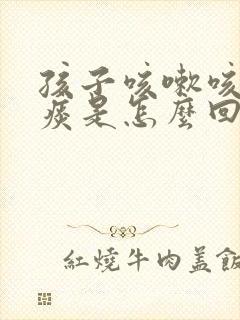 孩子咳嗽咳
痰是怎麼回
紅燒牛肉盖飯